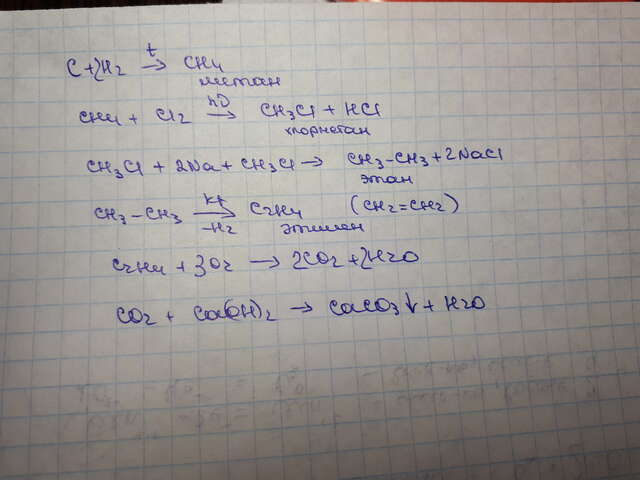 t
C + 2H2 → CH4
метан
hν
CH4 + Cl2 → CH3Cl + HCl
хлорметан
CH3Cl + 2Na + CH3Cl → CH3-CH3 + 2NaCl
этан
kt
CH3-CH3 → C2H4 (CH2=CH2)
-H2 этилен
C2H4 + 3O2 → 2CO2 + 2H2O
CO2 + Ca(OH)2 → CaCO3↓ + H2O